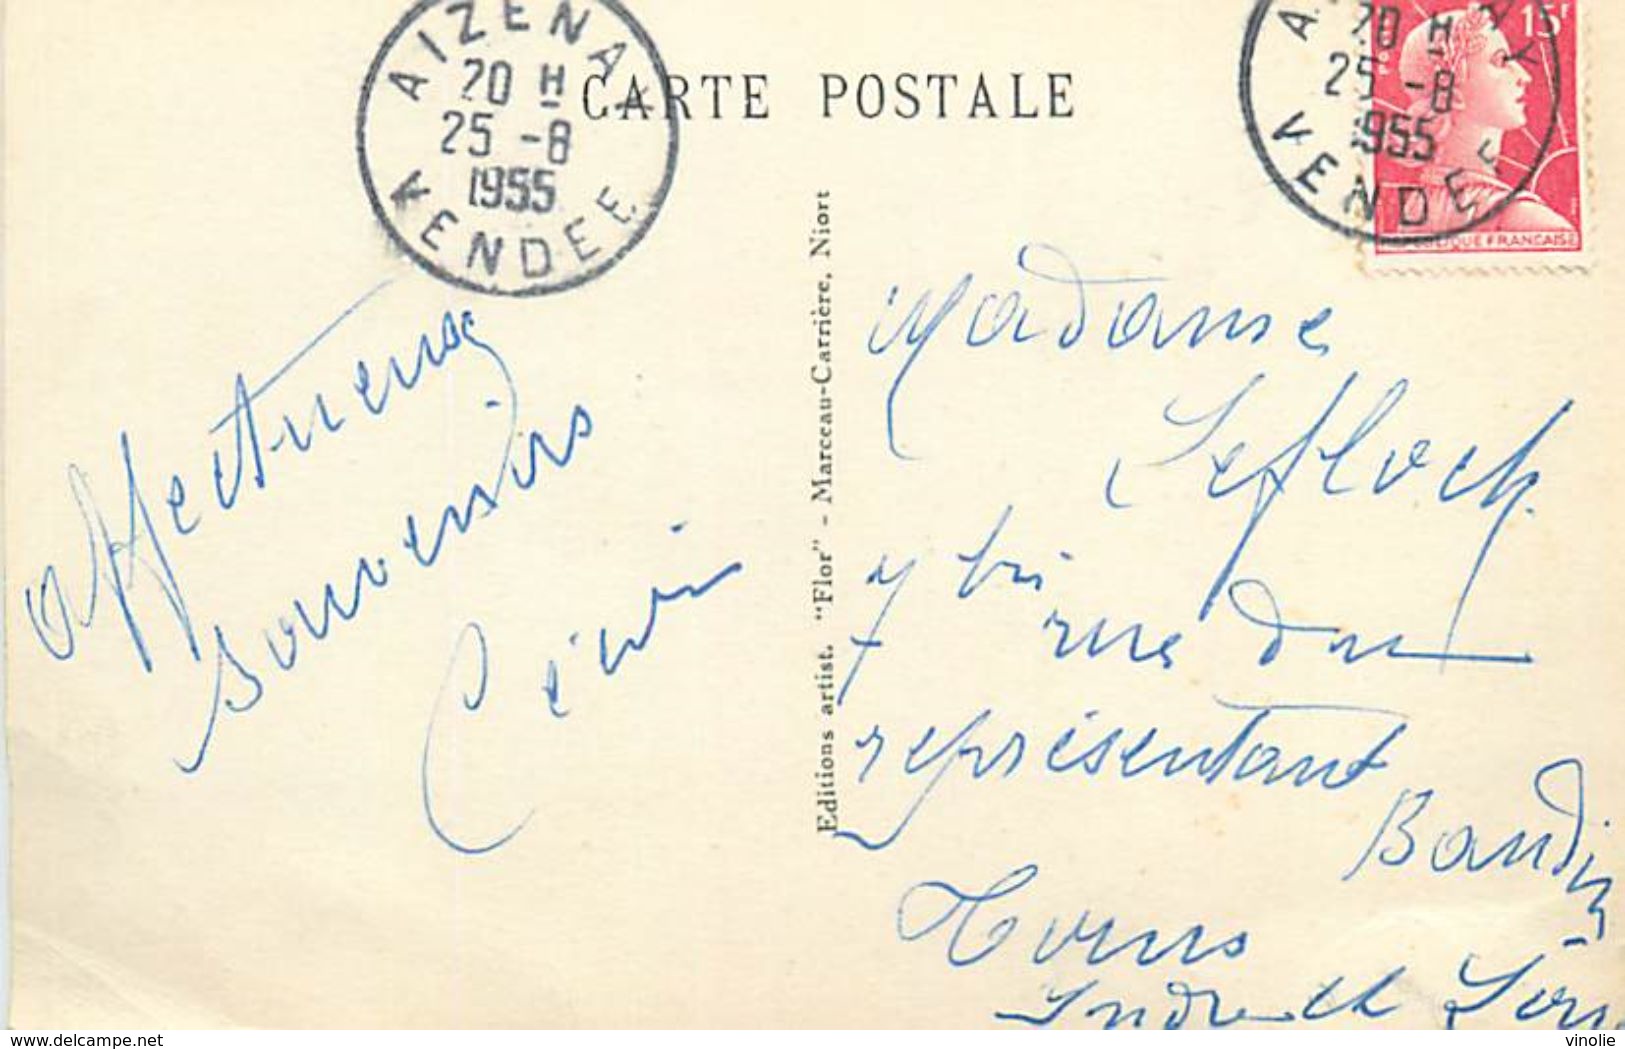 AIZENAY
20 H
25 -8
1955
VENDEE
CARTE POSTALE
15F
20 H
25 -8
1955
VENDEE
REPUBLIQUE FRANCAISE
Affectueux
souvenirs
Editions artist. "Flor" - Marceau-Carrière, Niort
Madame
Lefloch
7 bis
rue du
représentant
Baudin
Tours
Indre et Loir
www.delcampe.net
vinolie